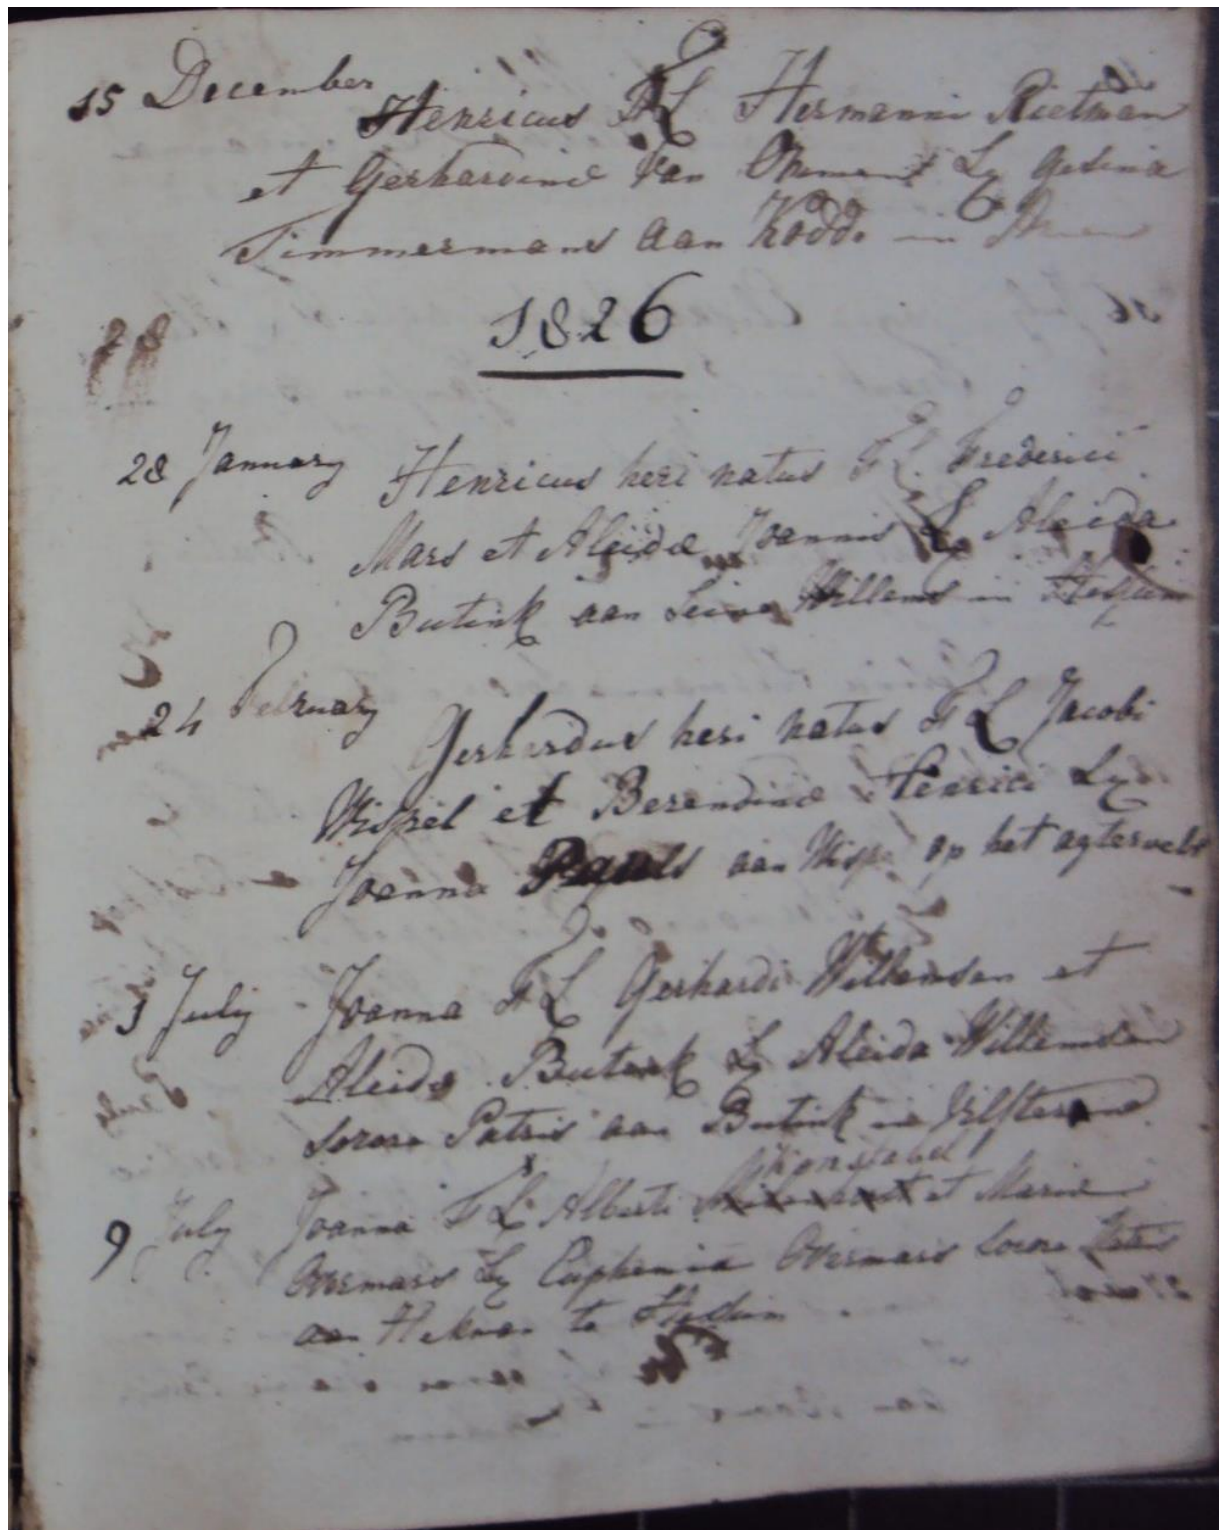 15 December
Henricus FL Hermanni Rietman
et Gerhardinæ Van Ommen Lx Gesina
Timmermans aan Kodde in
1826
28 January Henricus heri natus FL Frederici
Mars et Aleidæ Joannis Lx Aleida
Butink aan Willems in
24 February Gerhardus heri natus FL Jacobi
et Berendinæ Henrici Lx
Joanna Pauls aan op het agterveld
3 July Joanna FL Gerhardi Willemsen et
Aleidæ Butink Lx Aleida Willemsen
sorore Patris aan Butink in Vilsteren
9 July Joanna FL Alberti et Mariæ
Overmars Lx Euphemia Overmars sorore
aan te